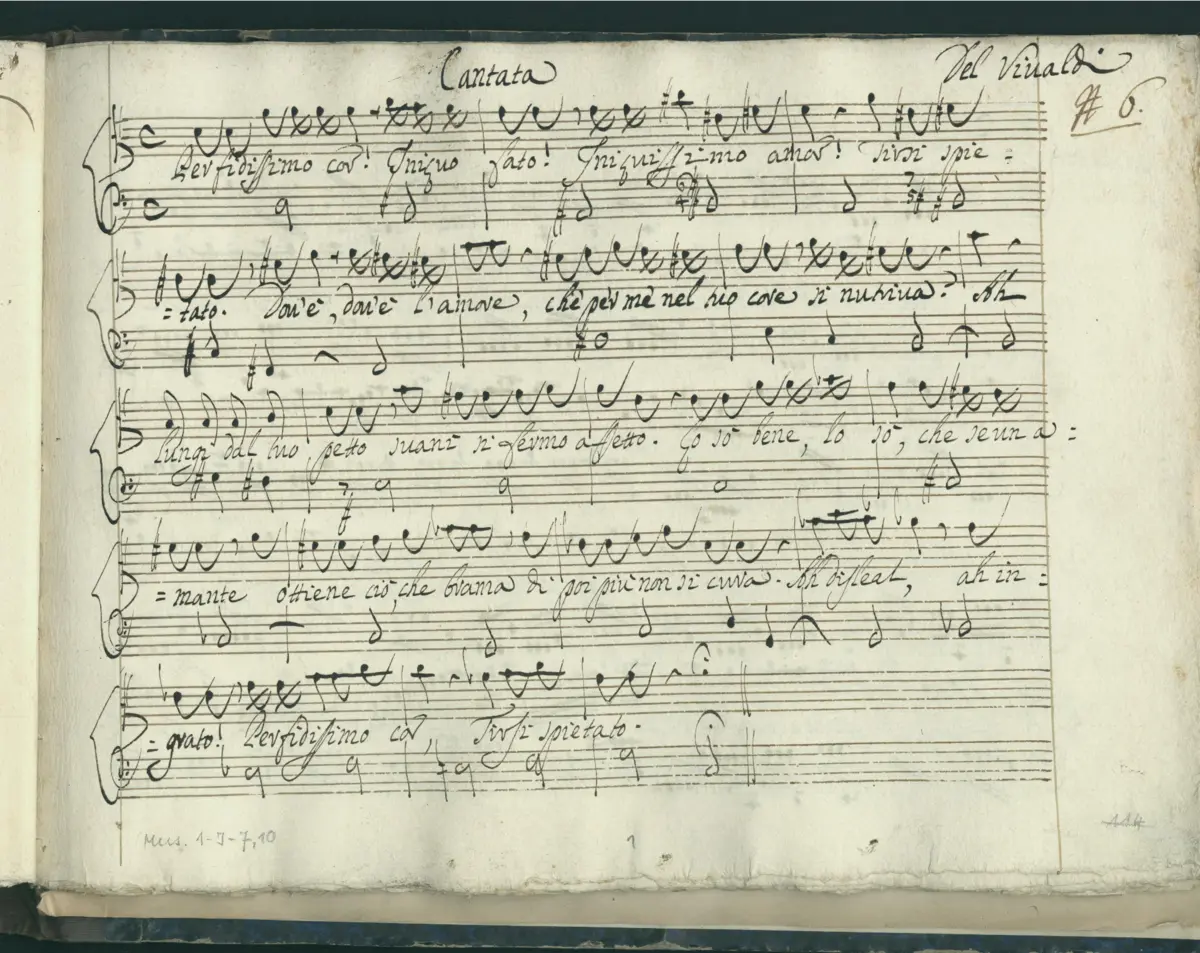 Cantata
Del Vivaldi
# 6.
Perfidissimo cor! Iniquo fato! Iniquissimo amor! Tirsi spie =
= tato. Dov'è, dov'è l'amore, chè pèr mè nel tuo core si nutriva? Ah
lungi dal tuo petto suanì si fermo affetto. Io sò bene, lo sò, che se un a =
= mante ottiene ciò, che brama di poi più non si cura. Ah disleal, ah in =
= grato! Perfidissimo cor, Tirsi spietato.
Mus. 1-J-7,10
1